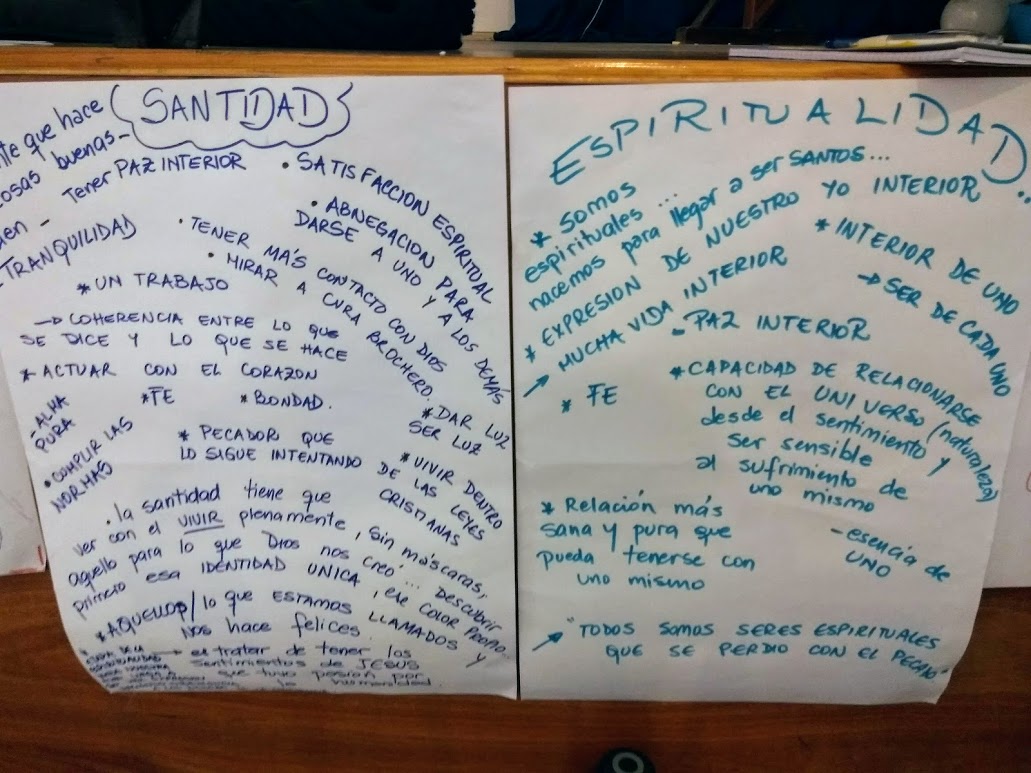 SANTIDAD
que hace
cosas buenas -
- Tener PAZ INTERIOR
TRANQUILIDAD
• SATISFACCION ESPIRITUAL
• ABNEGACION PARA
DARSE A UNO Y A LOS DEMÁS
• TENER MÁS CONTACTO CON DIOS
• MIRAR A CURA BROCHERO.
* UN TRABAJO
→ COHERENCIA ENTRE LO QUE
SE DICE Y LO QUE SE HACE
* ACTUAR CON EL CORAZON
* FE
* BONDAD.
. ALMA
PURA
* DAR LUZ
SER LUZ
• COMPLIR LAS
NORMAS
* PECADOR QUE
LO SIGUE INTENTANDO
* VIVIR DENTRO
DE LAS LEYES
CRISTIANAS
. la santidad tiene que
ver con el VIVIR plenamente, sin máscaras,
aquello para lo que Dios nos creó... Descubrir
primero esa IDENTIDAD UNICA, ese COLOR PROPIO...
* AQUELLO P/ lo que ESTAMOS LLAMADOS Y
NOS hace felices.
→ el tratar de tener los
sentimientos de JESUS
que tuvo pasión por
la humanidad.
ESPIRITUALIDAD...
* SOMOS
espirituales...
nacemos para llegar a ser SANTOS...
* EXPRESION DE NUESTRO YO INTERIOR
→ MUCHA VIDA INTERIOR
* INTERIOR DE UNO
→ SER DE CADA UNO
- PAZ INTERIOR
* FE
* CAPACIDAD DE RELACIONARSE
CON EL UNIVERSO (naturaleza)
desde el sentimiento y
ser sensible
al sufrimiento de
uno mismo
* Relación más
sana y pura que
pueda tenerse con
uno mismo
- esencia de
UNO
→ "TODOS SOMOS SERES ESPIRITUALES
QUE SE PERDIO CON EL PECADO"